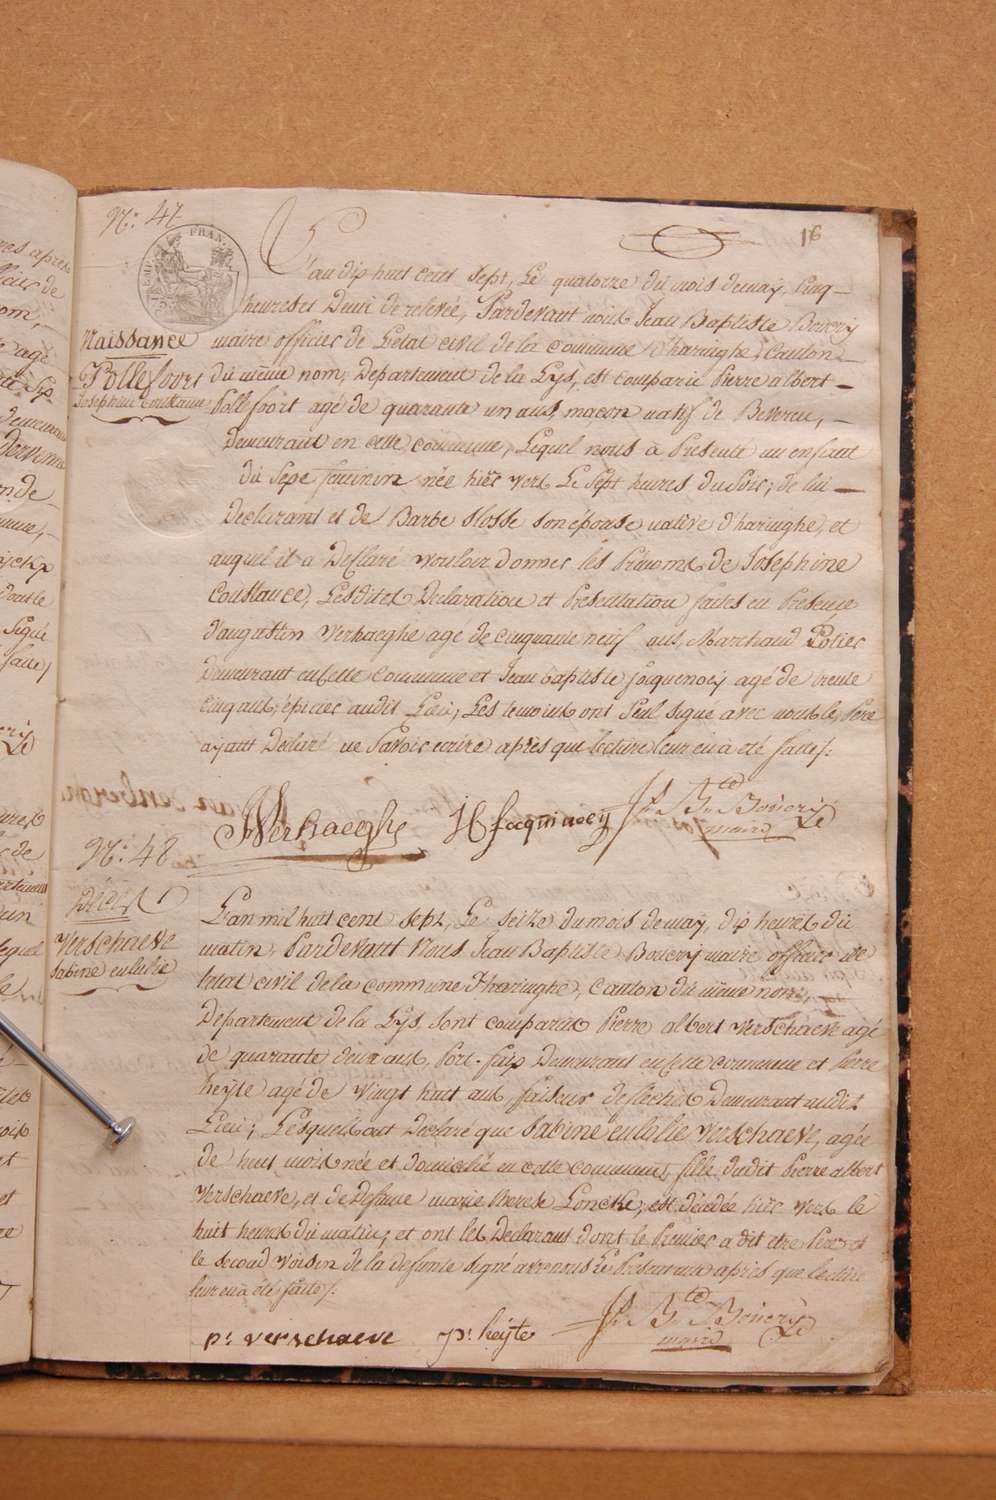 16
N.° 47
Naissance
Pollefoort
Josephine Constance
L'an dix huit cent sept, Le quatorze du mois de may, Cinq
heures et Demi de relevée, Pardevant nous Jean Baptiste Bouvery
maire officier de L'etat civil de la commune d'haringhe, Canton
du même nom, Departement de la Lys, est comparu Pierre albert
Pollefoort agé de quarante un ans, maçon natif de Beveren,
Demeurant en cette commune, Lequel nous a Presenté un enfant
du Sexe feminin née hier vers Le Sept heures du Soir, de lui
Declarant et de Barbe Slosse son épouse native d'haringhe, et
auquel il a Declaré vouloir donner les Prénoms de Josephine
Constance, Lesdites Declaration et Presentation faites en Presence
d'augustin Verhaeghe agé de cinquante neuf ans, Marchand Potier
Demeurant en cette Commune et Jean baptiste agé de trente
cinq ans, épicier audit Lieu; Les temoins ont Seul Signé avec nous le Pere
ayant Declaré ne Savoir ecrire après que lecture leur en a été faite/.
Verhaeghe
J. Bte Bouvery
maire
N.° 48
Décès
Verschaeve
Sabine eulalie
L'an mil huit cent sept, Le seize du mois de may, dix heures du
matin, Pardevant Nous Jean Baptiste Bouvery maire officier de
l'etat civil de la commune d'haringhe, Canton du même nom,
Departement de la Lys, sont comparus Pierre albert Verschaeve agé
de quarante deux ans, Port-faix Demeurant en cette commune et Pierre
heyte agé de Vingt huit ans faiseur de Demeurant audit
Lieu; Lesquels ont Déclaré que Sabine eulalie Verschaeve, agée
de huit mois née et domicilié en cette commune, fille dudit Pierre albert
Verschaeve, et de Defunte marie therese Loncke, est décédée hier vers le
huit heures du matin; et ont les Declarans dont le Premier a dit etre Pere et
le second Voisin de la defunte signé avec nous Le Present acte après que lecture
leur en a été faite/.
p: verschaeve
p: heyte
J. Bte Bouvery
maire